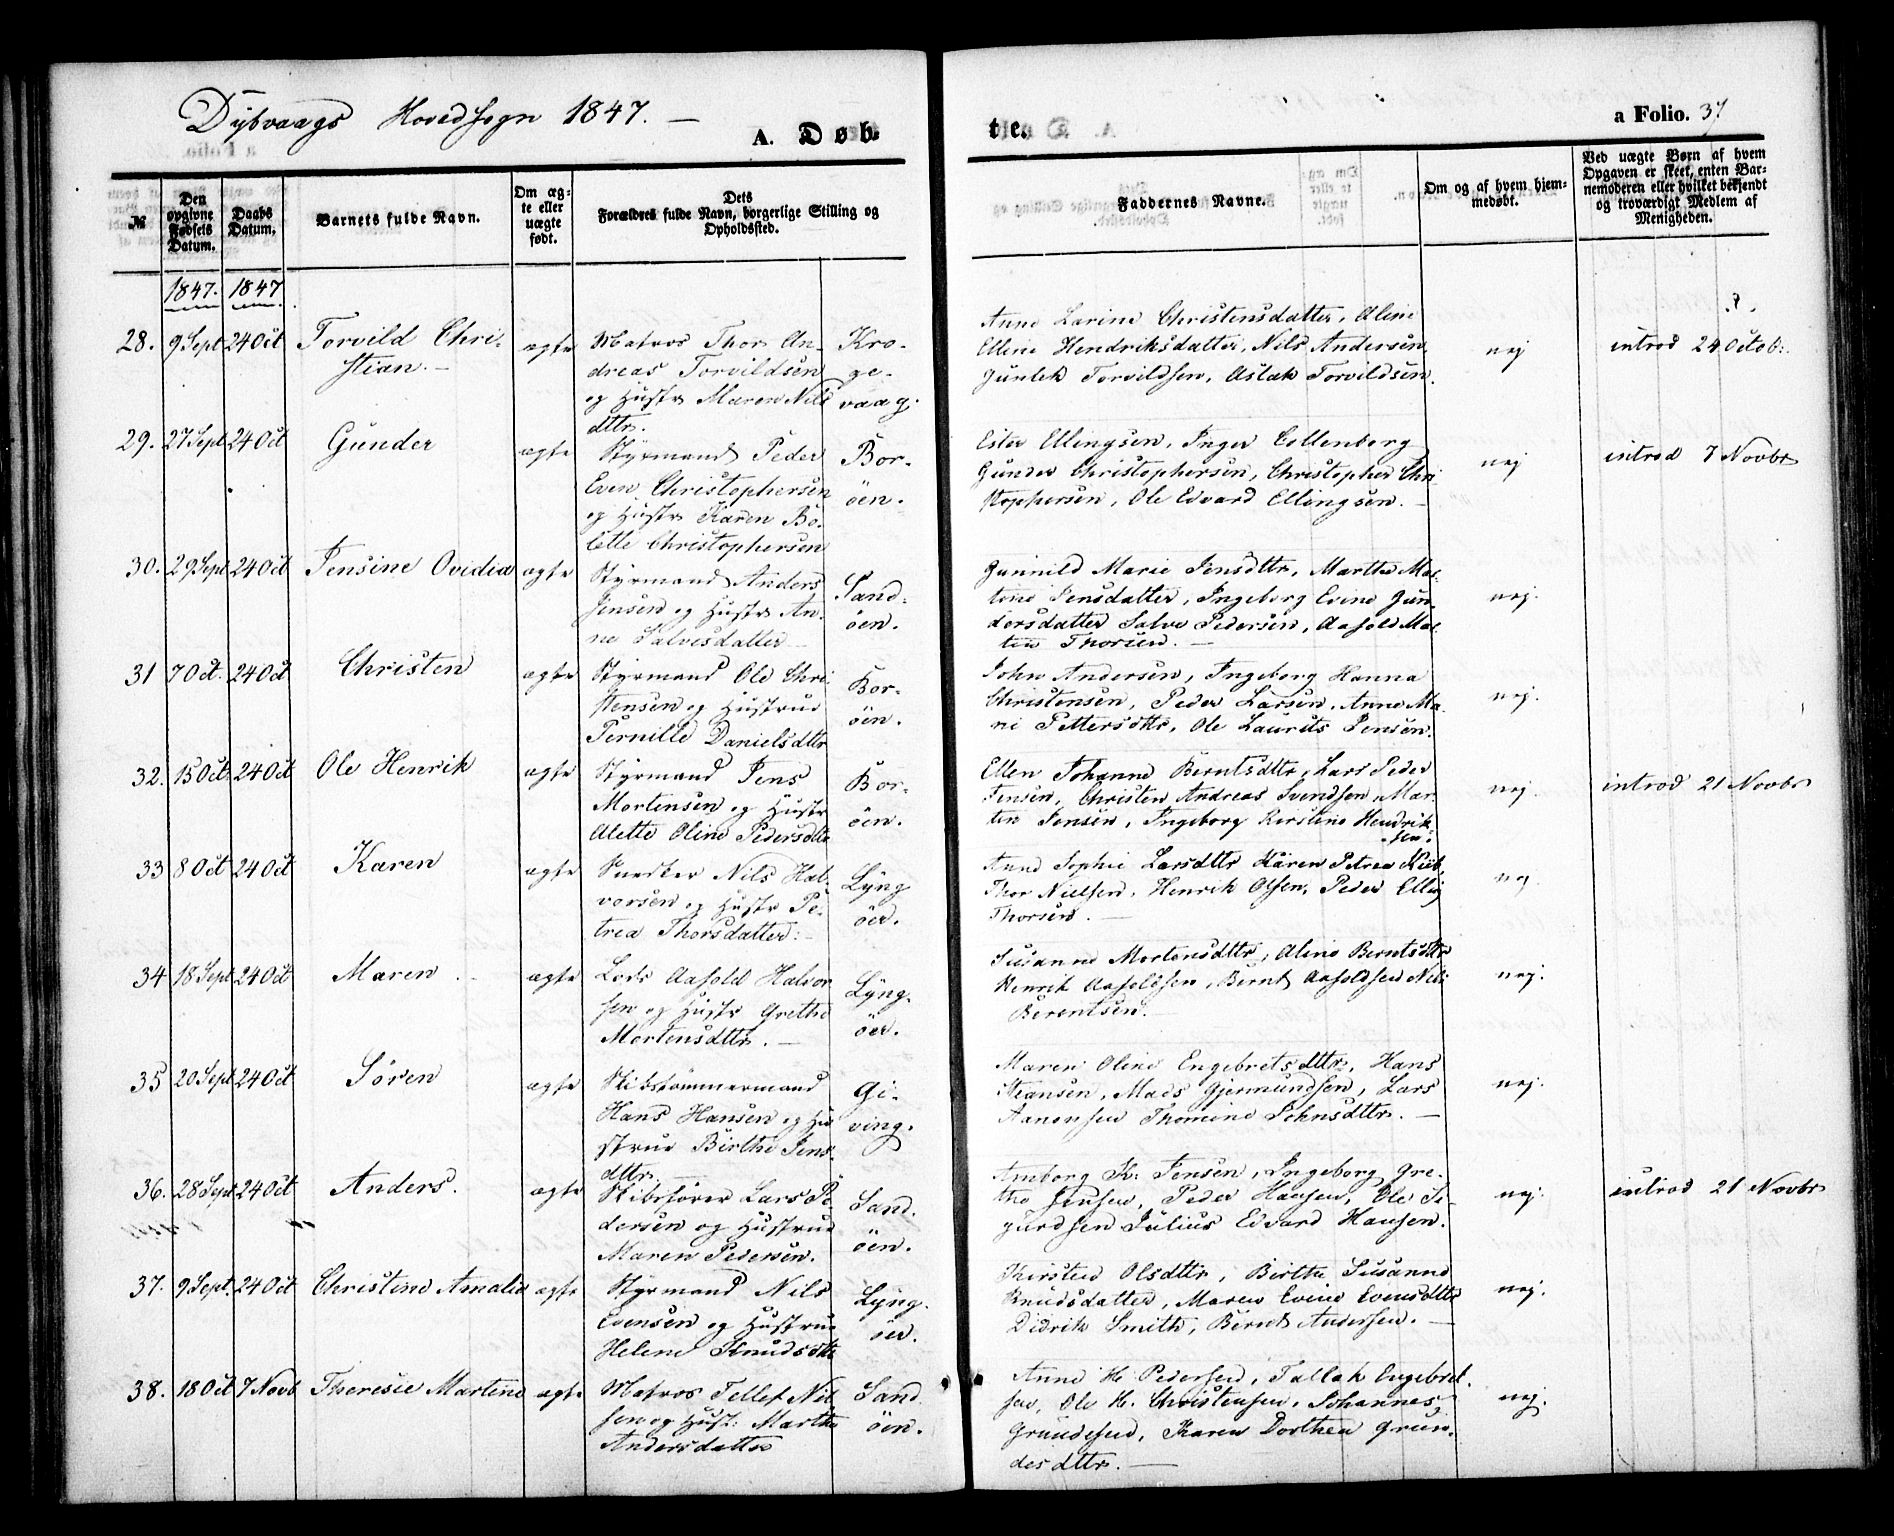 Dybvaags Hovedsogn 1847. —
A. Døb-
te.
a Folio. 37
№
Den opgivne Fødsels Datum.
Daabs Datum.
Barnets fulde Navn.
Om ægte eller uægte født.
Dets
Forældres fulde Navn, borgerlige Stilling og
Opholdssted.
Faddernes Navne.
Om og af hvem hjemmedøbt.
Ved uægte Børn af hvem
Opgaven er skeet, enten Bar-
nemoderen eller hvilket bekjendt
og troværdigt Medlem af
Menigheden.
1847. 1847
28. 9 Sept 24 Oct Torvild Chri-
stian. —
ægte
Matros Thor An-
dreas Torvildsen
og Hustr Maren Nils
dttr.
Kro-
ge-
vaag.
Anne Larine Christensdatter, Aline
Elline Hendriksdatter, Nils Andersen,
Gunlek Torvildsen, Aslak Torvildsen.
nej
introd 24 Octob:
29. 27 Sept 24 Oct Gunder
ægte
Styrmand Peder
Even Christophersen
og Hustr Karen Bo-
lette Christophersen
Bor-
öen.
Ester Ellingsen, Inger Collenborg
Gunder Christophersen, Christopher Chri
stophersen, Ole Edvard Ellingsen. —
nej
introd 7 Novbr
30. 29 Sept 24 Oct Jensine Ovidia
ægte
Styrmand Anders
Jensen og Hustr An-
ne Salvesdatter —
Sand-
öen.
Gunnild Marie Jensdttr, Marthe Mar-
tine Jensdatter, Ingeborg Evine Gun-
dersdatter Salve Pedersen, Aasold Mar-
tin Thorsen. —
nej.
31 7 Oct. 24 Oct Christen
ægte
Styrmand Ole Chri
stensen og Hustrue
Pernille Danielsdttr
Bor-
öen.
John Andersen, Ingeborg Hanna
Christensen, Peder Larsen, Anne Ma-
rie Pettersdttr, Ole Laurits Jensen.
nej.
32. 15 Oct. 24 Oct Ole Henrik
ægte
Styrmand Jens
Mortensen og Hustr
Alette Oline Pedersdttr
Bor-
öen.
Ellen Johanne Berntsdttr, Lars Peder
Jensen, Christen Andreas Svendsen, Mar-
tin Jensen, Ingeborg Kerstine Hendrik-
sen.
nej.
introd 21 Novbr
33 8 Oct 24 Oct Karen
ægte
Snedker Nils Hal-
vorsen og Hustr Pe-
trea Thorsdatter. —
Lyng
öer.
Anne Sophie Larsdttr Karen Petrea
Thor Nielsen, Henrik Olsen, Peder Elling
Thorsen. —
34 18 Sept 24 Oct Maren.
ægte
Lods Aasold Halvor
sen og Hustr Grethe
Mortensdttr. —
Lyng-
öer.
Susanne Mortensdttr, Aline Berntsdttr
Henrik Aasoldsen, Bernt Aasoldsen Nils
Berentsen.
nej.
35 20 Sept 24 Oct Sören
ægte
Skibstömmermand
Hans Hansen og Hu
strue Birthe Jens-
dttr.
Gi-
ving.
Maren Oline Engebretsdttr, Hans
Hansen, Mads Gjermundsen, Lars
Aanonsen Thomine Johnsdttr. —
nej.
36. 28 Sept 24 Oct Anders.
ægte
Skibsförer Lars Pe-
dersen og Hustrue
Maren Pedersen.
Sand.
öen.
Amborg K. Jensen, Ingeborg Gre-
the Jensen, Peder Hansen, Ole Si-
gurdsen Julius Edvard Hansen.
nej.
introd 21 Novbr
37. 9 Sept. 24 Oct Christine Amalia
ægte
Styrmand Nils
Evensen og Hustrue
Helene Knudsdttr
Lyng.
öer.
Kirsten Olsdttr, Birthe Susanne
Knudsdatter, Maren Evine Evensdttr
Didrik Smith, Bernt Andersen. —
nej.
38. 18 Oct 7 Novb Theresie Martine
ægte
Matros Tellef Nil
sen og Hust: Marthe
Andersdatter
Sand
öen.
Anne H. Pedersen, Tallak Engebret-
sen, Ole H. Christensen, Johannes
Grundesen, Karen Dorthea Grun-
desdttr. —
nej.